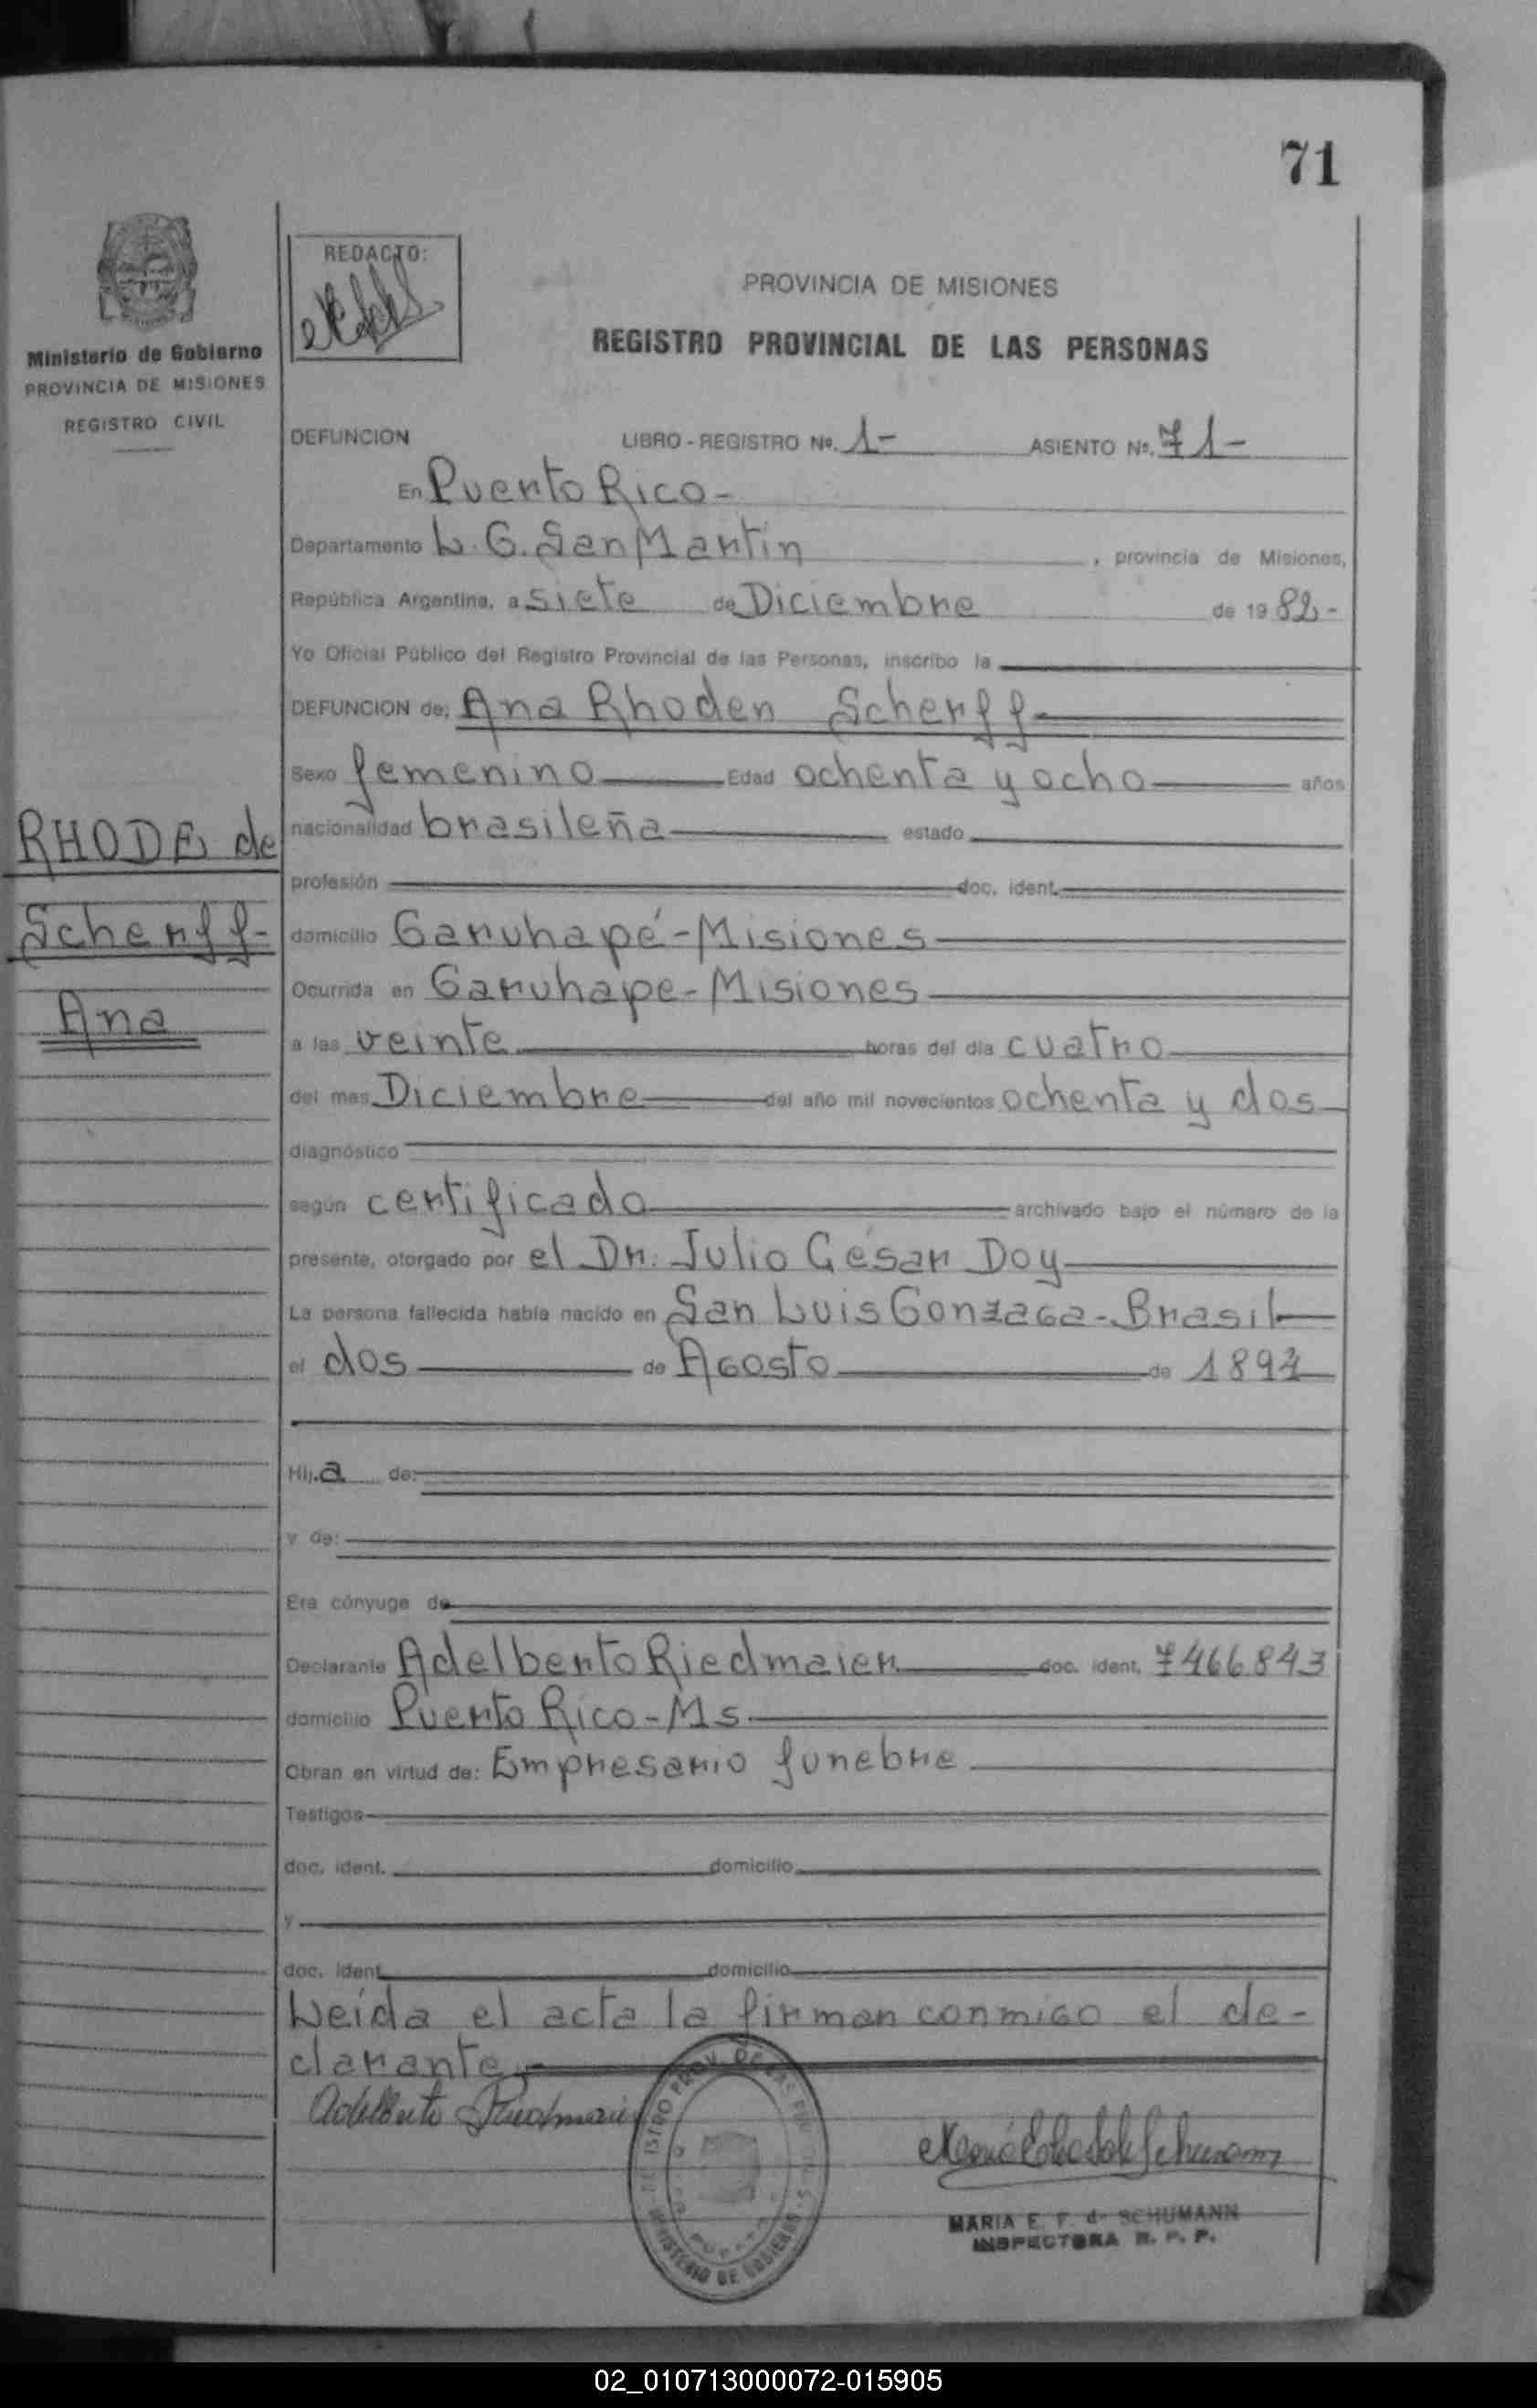 71
REDACTO:
Ministerio de Gobierno
PROVINCIA DE MISIONES
REGISTRO CIVIL
PROVINCIA DE MISIONES
REGISTRO PROVINCIAL DE LAS PERSONAS
DEFUNCION LIBRO - REGISTRO Nº. 1- ASIENTO Nº. 71-
En Puerto Rico-
Departamento L. G. San Martin, provincia de Misiones,
República Argentina, a siete de Diciembre de 1982-
Yo Oficial Público del Registro Provincial de las Personas, inscribo la
DEFUNCION de: Ana Rhoden Scherff-
Sexo femenino Edad ochenta y ocho años
RHODE de
Scherff-
Ana
nacionalidad brasileña estado
profesión doc. ident.
domicilio Garuhapé-Misiones
Ocurrida en Garuhape-Misiones
a las veinte horas del día cuatro
del mes Diciembre del año mil novecientos ochenta y dos
diagnóstico
según certificado archivado bajo el número de la
presente, otorgado por el Dr. Julio César Doy
La persona fallecida había nacido en San Luis Gonzaga-Brasil
el dos de Agosto de
Hij.a de:
y de:
Era cónyuge de
Declarante Adelberto Riedmaier doc. ident. 7466843
domicilio Puerto Rico-Ms
Obran en virtud de: Empresario funebre
Testigos
doc. ident. domicilio
y
doc. ident. domicilio
Leída el acta la firman conmigo el de-
clarante,
Adelberto Riedmaier
MINISTERIO DE GOBIERNO
MARIA E. F. de SCHUMANN
INSPECTORA R. P. P.
02_010713000072-015905